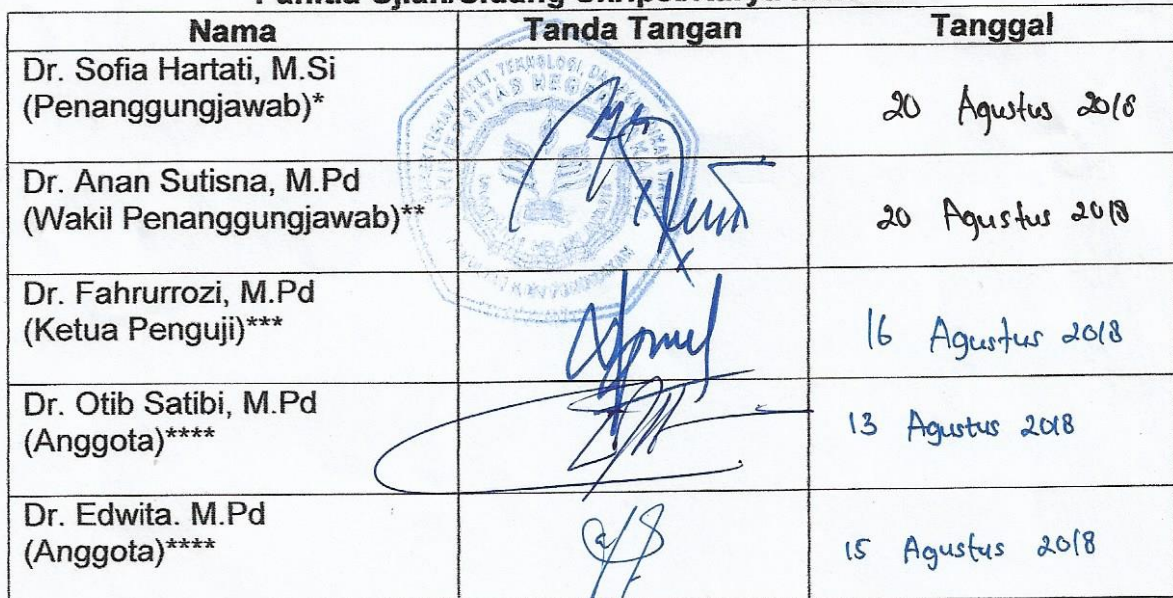 Panitia Ujian/Sidang Skripsi/Karya
Nama Tanda Tangan Tanggal
Dr. Sofia Hartati, M.Si
(Penanggungjawab)* 20 Agustus 2018
Dr. Anan Sutisna, M.Pd
(Wakil Penanggungjawab)** 20 Agustus 2018
Dr. Fahrurrozi, M.Pd
(Ketua Penguji)*** 16 Agustus 2018
Dr. Otib Satibi, M.Pd
(Anggota)**** 13 Agustus 2018
Dr. Edwita. M.Pd
(Anggota)**** 15 Agustus 2018